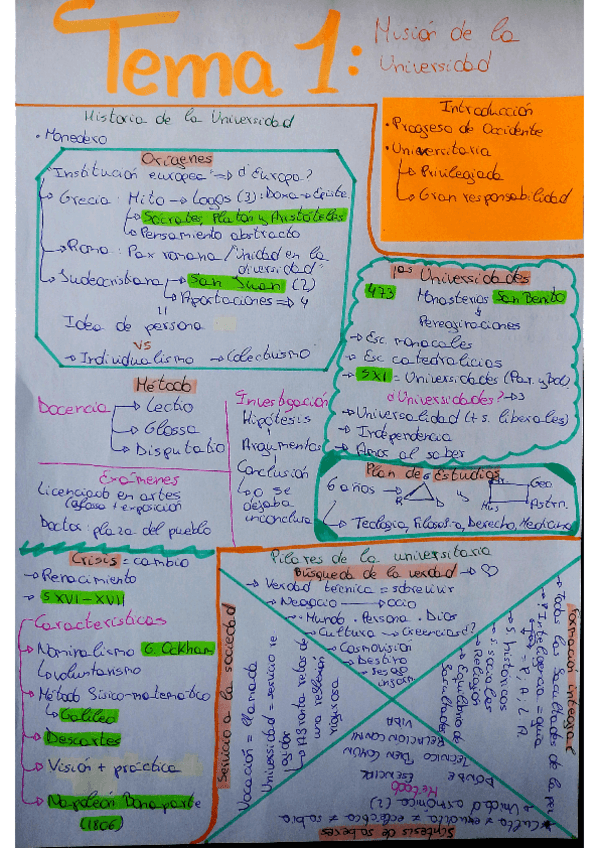 Tema 1:
Misión de la
Universidad
Historia de la Universidad
· Monedero
Orígenes
"Institución europea" → ¿Europa?
→ Grecia: Mito → Logos (3): Doxa → Episte
→ Sócrates, Platón y Aristóteles
→ Pensamiento abstracto
→ Roma: Pax romana / "Unidad en la
diversidad"
→ Judeocristiana → San Juan (2)
→ Aportaciones → 4
Idea de persona
vs
→ Individualismo → Colectivismo
Introducción
· Progreso de Occidente
· Universitaria
→ Privilegiada
→ Gran responsabilidad
1as Universidades
473 Monasterios San Benito
Peregrinaciones
→ Esc. monacales
→ Esc. catedralicias
→ SXI = Universidades (Par. y Bol)
¿Universidades? → 3
→ Universalidad (+ s. liberales)
→ Independencia
→ Amor al saber
Método
Docencia → Lectio
→ Glossa
→ Disputatio
Investigación
Hipótesis
Argumentos
Conclusión
→ o se
dejaba
inconclusa
Exámenes
Licenciado en artes
(defensa + exposición)
Doctor: plaza del pueblo
Plan de Estudios
6 años
Geo
Mus
Astrn.
→ Teología, Filosofía, Derecho, Medicina
Crisis = cambio
→ Renacimiento
→ S XVI-XVII
Características
→ Nominalismo G. Ockham
↳ voluntarismo
→ Método físico-matemático
↳ Galileo
→ Descartes
→ Visión + práctica
→ Napoleón Bonaparte
(1806)
Pilares de la universitaria
Búsqueda de la verdad → ∞
→ Verdad técnica = sobrevivir
→ Negocio → Ocio
→ Mundo · Persona · Dios
→ Cultura
→ Cosmovisión
→ Destino
Servicio a la sociedad
Vocación = llamada
Universidad = servicio
→ Afronta retos de
una reflexión
rigurosa
Formación integral
→ Todas las facultades de la per
→ Inteligencia = guía
→ V, A, L, A
S. históricos
y sociales
→ Religión
→ Equilibrio de
facultades
Síntesis de saberes
→ Culto ≠ erudito ≠ ecléctico ≠ sabio
→ Unidad armónica (2)
Método
DONDE ESENCIAL
TÉCNICO BIEN COMÚN
RELACIÓN CON MI
VIDA